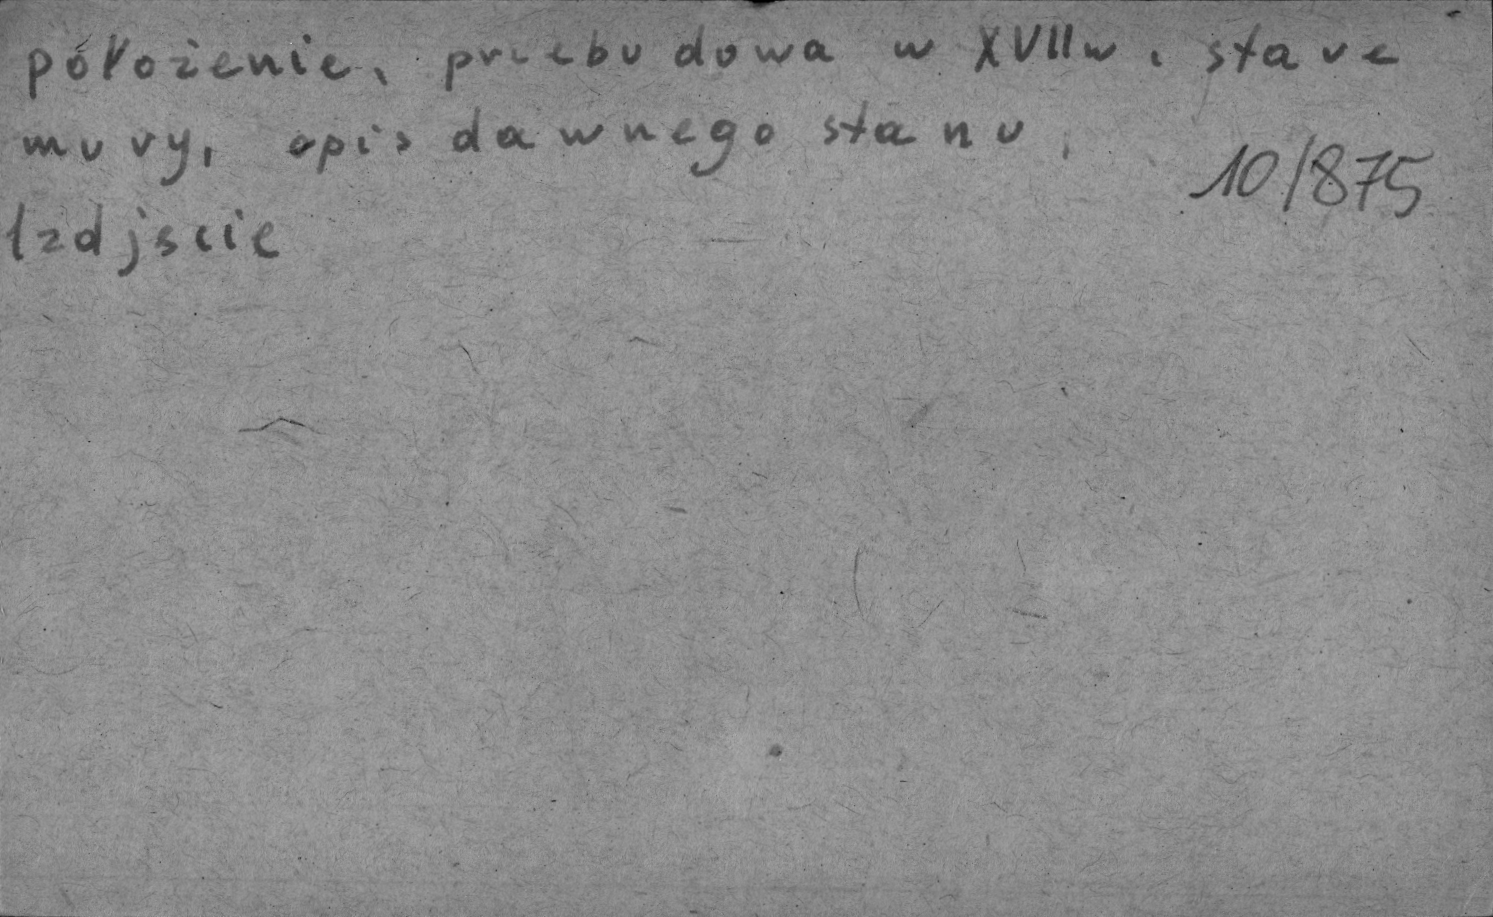 położenie, przebudowa w XVIIw, stare
mury, opis dawnego stanu,
10/875
1zdjęcie